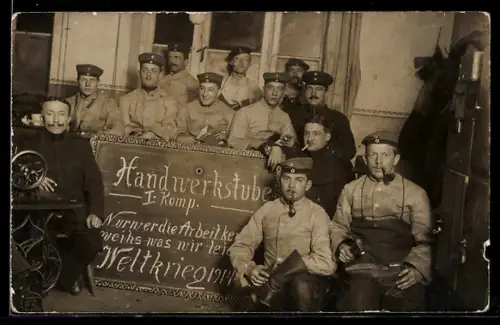 Handwerkstube
I. Komp.
Nur wer die Arbeit kennt
weihs was wir leisten
Weltkrieg 1914